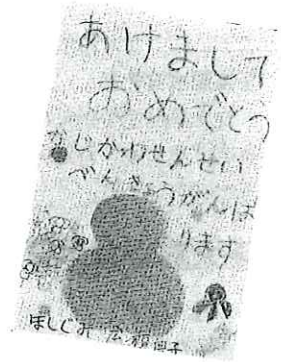 あけまして
おめでとう
かじかわせんせい
べんきょうがんば
ります